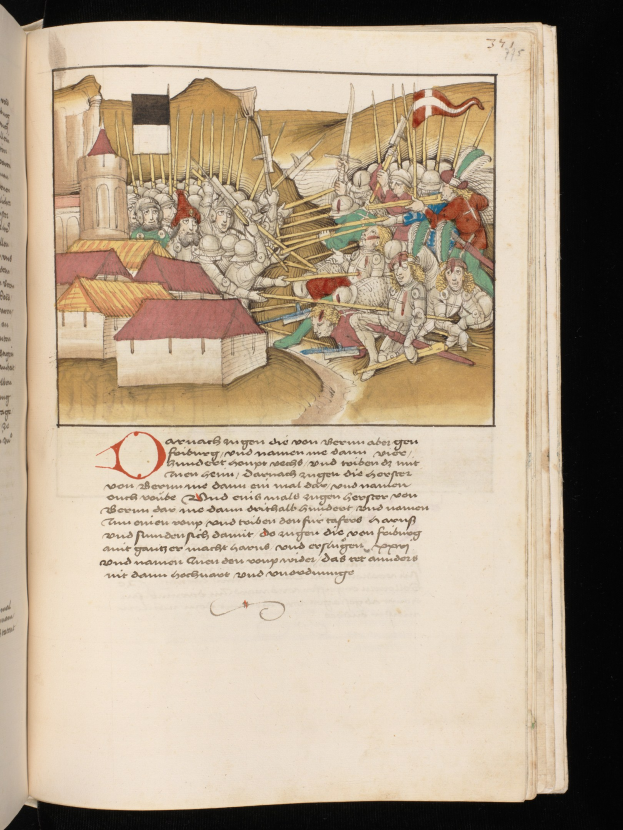 371
Darnach zugen die von Bernn aber gen
friburg / vnd namen me dann vier /
hundertt houpt vechs vnd triben dz mit
Inen heim / Darnach zugen die herster
von Bernn me dann ein mal dar vnd namen
ouch röube Vnd eins mals zugen herster von
Bernn dar me dann drithalb hundert vnd namen
Inn einen roup vnd triben den fur tafers harnß
vnd sumden sich damit do zugen die von friburg
mit gantzer macht harnß vnd erslugen Ir
vnd namen Inen den roup wider das tet anders
nit dann hochmut vnd vnordnunge